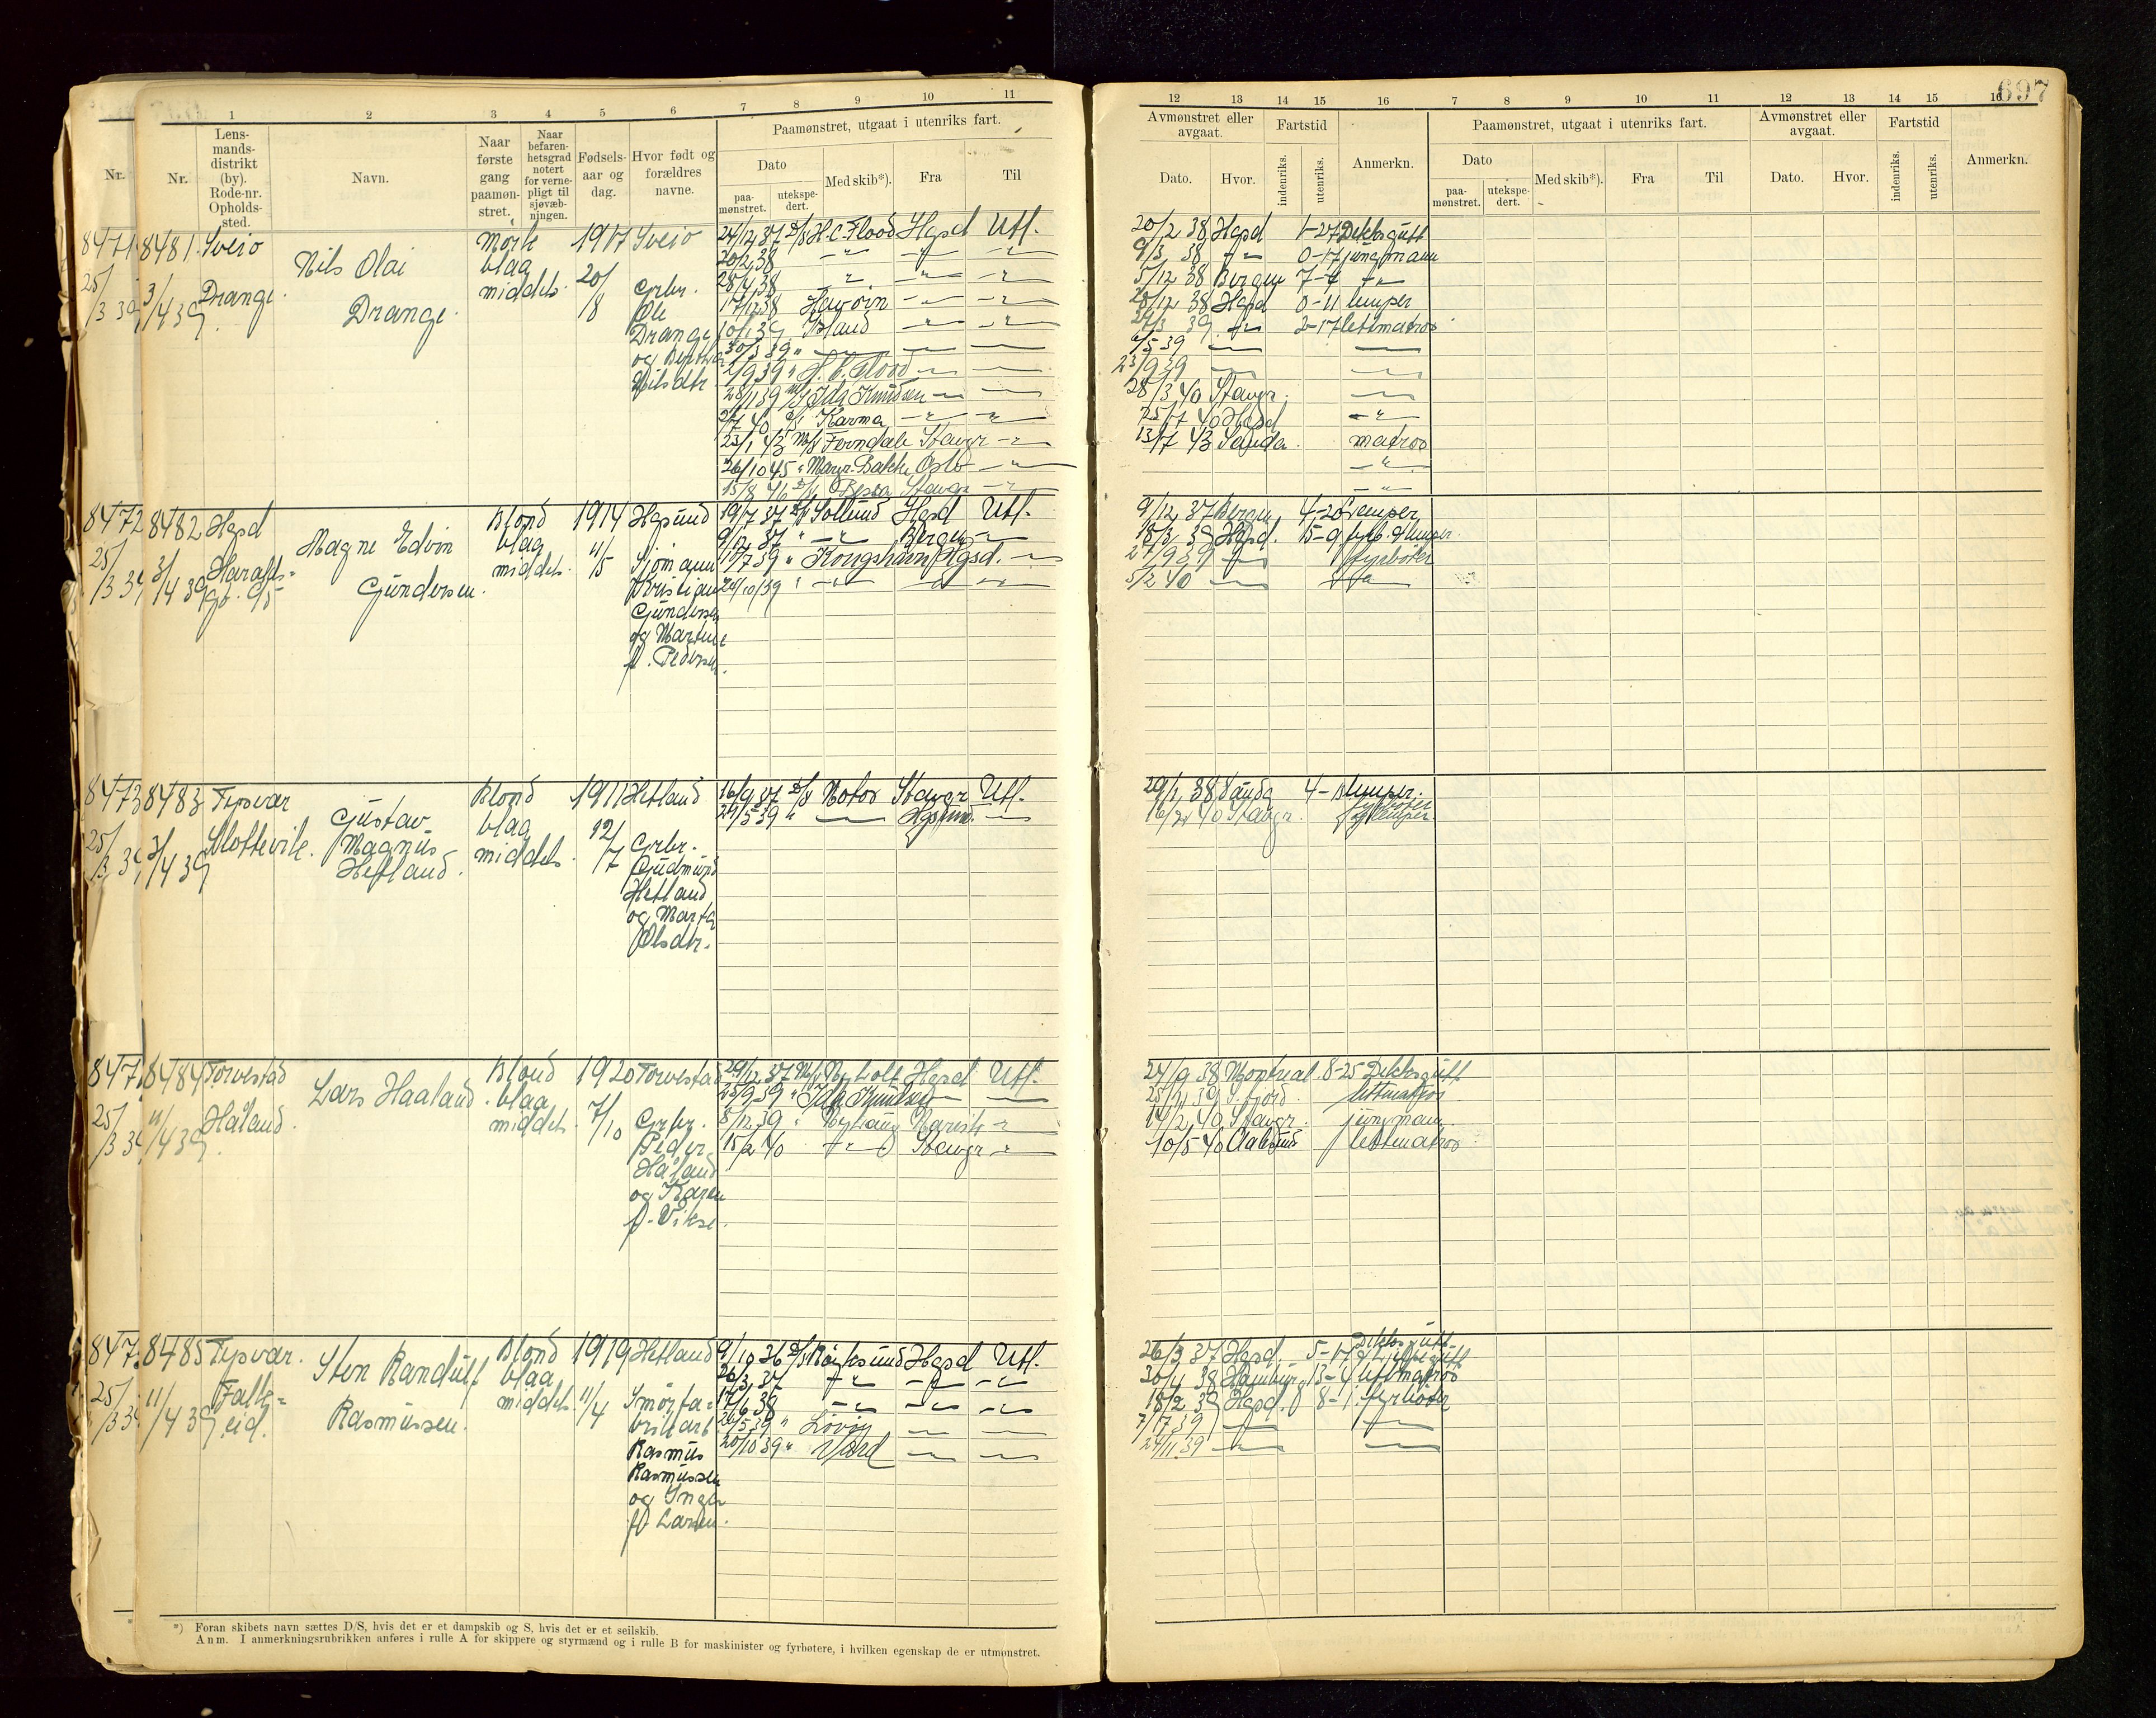 697
1 2 3 4 5 6 7 8 9 10 11
Nr. Nr. Lensmandsdistrikt (by). Rode-nr. Opholdssted. Navn. Naar første gang paamønstret. Naar befarenhetsgrad notert for vernepligt til sjøvæbningen. Fødselsaar og dag. Hvor født og forældres navne.
Paamønstret, utgaat i utenriks fart.
Dato Med skib*). Fra Til
paamønstret. utekspedert.
12 13 14 15 16 7 8 9 10 11 12 13 14 15 16
Avmønstret eller avgaat. Fartstid Anmerkn. Paamønstret, utgaat i utenriks fart. Avmønstret eller avgaat. Fartstid Anmerkn.
Dato. Hvor. indenriks. utenriks. Dato Med skib*). Fra Til Dato. Hvor. indenriks. utenriks.
paamønstret. utekspedert.
8471 8481 Sveio
25/3 39 3/4 39 Drange.
Nils Olai
Drange.
Mørk
blaa
middels.
1917
20/8
Sveio
Grbr.
Ole
Drange
og Bertha
Nilsdtr.
24/12 37 D/S H.C. Flood Hgsd Utl.
20/2 38 -"- -"- -"-
28/4 38 -"- -"- -"-
17/12 38 Havørn -"- -"-
10/1 39
30/3 39 "
2/9 39 " H.C. Flood
28/11 39 M/S Ida Knudsen
40 D/S Karma -"- -"-
23/1 43 M/S Ferndale Stavgr -"-
26/10 45 " Margr. Bakke Oslo -"-
15/8 46 D/S Stavgr -"-
20/2 38 Hgsd 1-27 Deksgutt
9/3 38 -"- 0-17 jungmann
5/12 38 Bergen 7-7 -"-
28/12 38 Hgsd 0-11 lemper
27/3 39 -"- 2-17 lettmatros
6/5 39
23/9 39
28/3 40 Stavgr.
25/7 40 Hgsd -"-
13/7 43 Sauda. matros
-"-
-"-
8472 8482 Hgsd
25/3 39 3/4 39 Haralds=
Magne Edvin
Gundersen.
Blond
blaa
middels.
1914
4/5
Hgsund
Sjømann
Kristian
Gundersen
og Martine
f. Pedersen.
19/7 37 D/S Sollund Hgsd Utl.
9/12 37 " -"- Bergen
17/7 39 " Kongshavn Hgsd.
24/10 39 "
9/12 37 Bergen 4-20 Lemper
18/3 39 Hgsd. 15-9 fyrb. & lemper.
27/9 39 fyrbøter
5/2 40
8473 8483 Tysvær
25/3 39 3/4 39 Slottevik.
Gustav
Magnus
Hetland.
Blond
blaa
middels.
1911
12/7
Hetland
Grbr.
Gudmund
Hetland
og Marta
Olsdtr.
16/9 37 D/S Motor Stavgr Utl.
24/5 39 " Hgsund.
29/1 38 Sauda lemper.
40 Stavgr. fyrbøter
lemper.
847 8484 Torvestad
25/3 39 11/4 39 Håland.
Lars Haaland.
Blond
blaa
middels.
1920
7/10
Torvestad
Grbr.
Peder
Håland
og Karen
f. Vikse.
29/12 37 M/S Nyholt Hgsd Utl.
23/9 39 " Ida Knudsen
8/12 39 " Nyhaug Narvik -"-
15/2 40 -"- Stavgr -"-
24/9 38 Montreal 8-25 Deksgutt
39 S. fjord. lettmatros
14/2 40 Stavgr. jungmann
10/5 40 Aalesund lettmatros
847 8485 Tysvær.
25/3 39 11/4 39 Falk=
eid.
Sten Randulf
Rasmussen.
Blond
blaa
middels.
1919
11/4
Hetland
Smørfa=
brikkarb
Rasmus
Rasmussen
og Inga
f. Larsen.
9/10 36 D/S Røyksund Hgsd Utl.
26/3 37 -"- -"- -"-
17/6 38 -"- -"- -"-
26/5 39 "
20/10 39 "
26/3 37 Hgsd. 5-17 Deksgutt
30/4 38 Hamburg 13-4 lettmatros
18/2 39 Hgsd. 8-1 fyrbøter
7/7 39
24/11 39
*) Foran skibets navn sættes D/S, hvis det er et dampskib og S, hvis det er et seilskib.
Anm. I anmerkningsrubrikken anføres i rulle A for skippere og styrmænd og i rulle B for maskinister og fyrbøtere, i hvilken egenskap de er utmønstret.